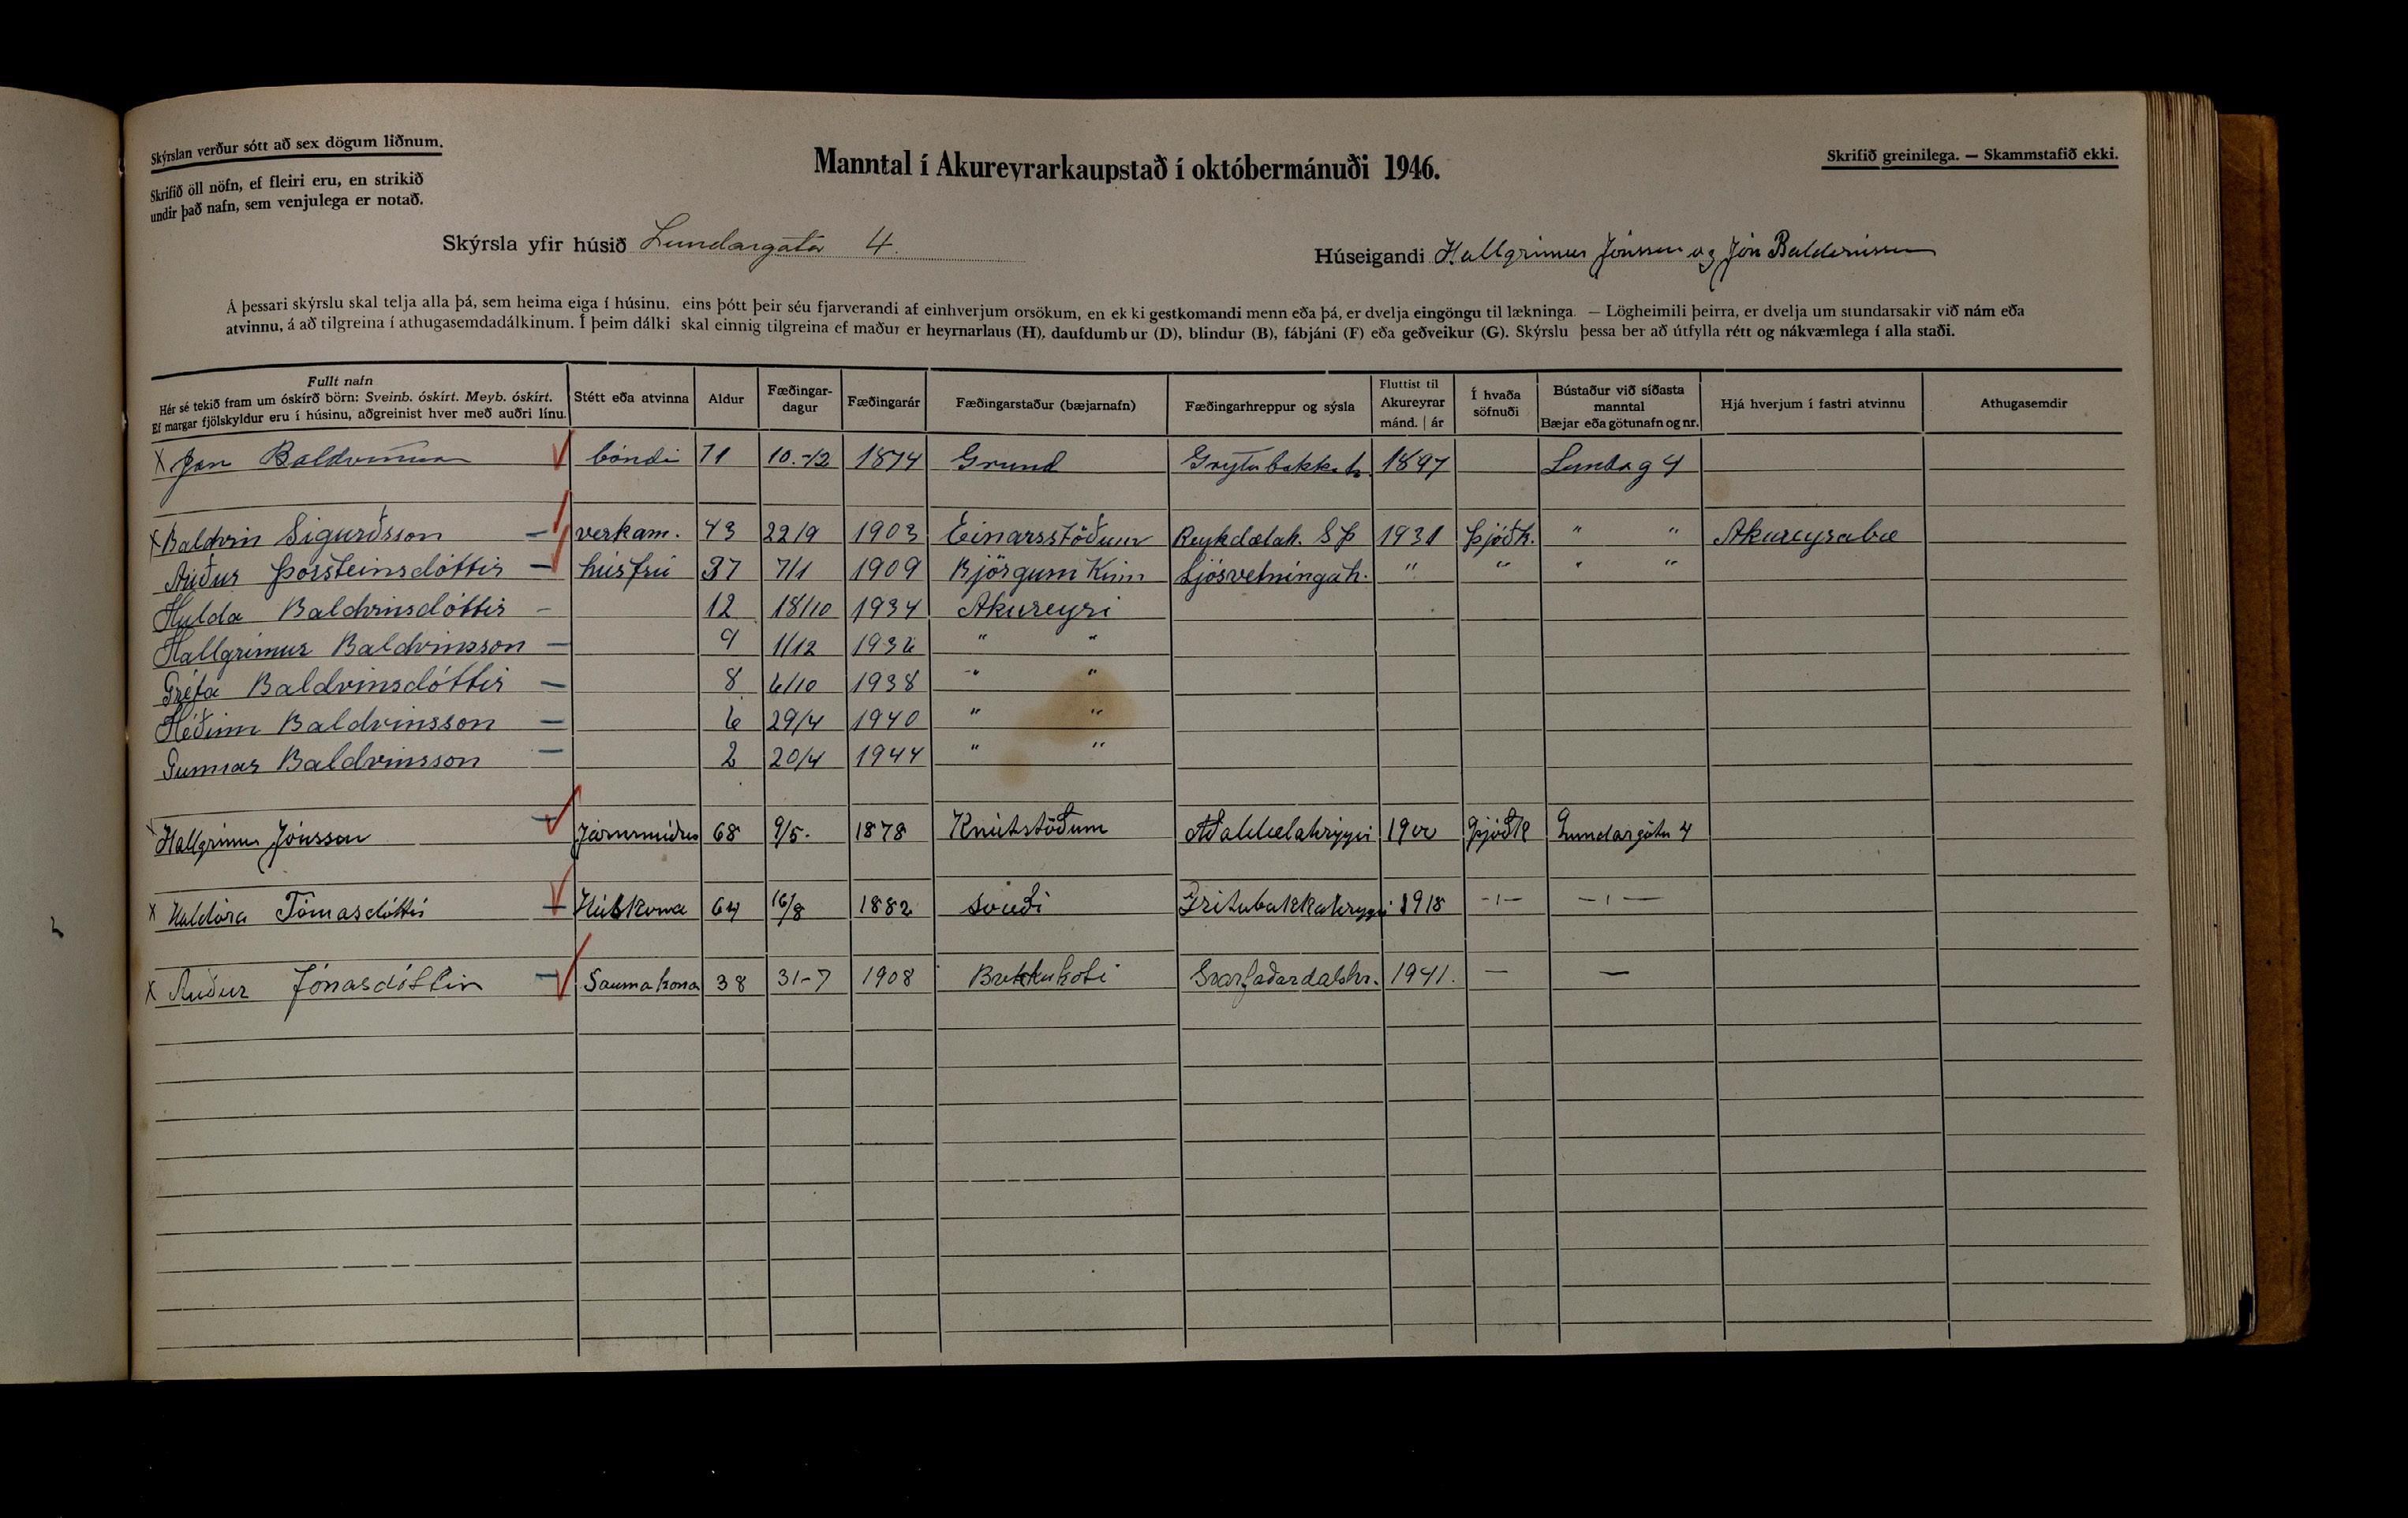 Skýrslan verður sótt að sex dögum liðnum.
Skrifið öll nöfn, ef fleiri eru, en strikið
undir það nafn, sem venjulega er notað.
Manntal í Akureyrarkaupstað í októbermánuði 1946.
Skrifið greinilega. — Skammstafið ekki.
Skýrsla yfir húsið Lundargata 4.
Húseigandi Hallgrimur Jónsson og Jón Baldvinsson
Á þessari skýrslu skal telja alla þá, sem heima eiga í húsinu, eins þótt þeir séu fjarverandi af einhverjum orsökum, en ek ki gestkomandi menn eða þá, er dvelja eingöngu til lækninga. — Lögheimili þeirra, er dvelja um stundarsakir við nám eða
atvinnu, á að tilgreina í athugasemdadálkinum. Í þeim dálki skal einnig tilgreina ef maður er heyrnarlaus (H), daufdumb ur (D), blindur (B), fábjáni (F) eða geðveikur (G). Skýrslu þessa ber að útfylla rétt og nákvæmlega í alla staði.
Fullt nafn
Hér sé tekið fram um óskírð börn: Sveinb. óskírt. Meyb. óskírt.
Ef margar fjölskyldur eru í húsinu, aðgreinist hver með auðri línu.
Stétt eða atvinna
Aldur
Fæðingar-
dagur
Fæðingarár
Fæðingarstaður (bæjarnafn)
Fæðingarhreppur og sýsla
Fluttist til
Akureyrar
mánd. | ár
Í hvaða
söfnuði
Bústaður við síðasta
manntal
Bæjar eða götunafn og nr.
Hjá hverjum í fastri atvinnu
Athugasemdir
x Jon Baldvinsson bóndi 71 10.-12 1874 Grund Grýtubakkah. 1897 Lundag 4
x Baldvin Sigurðsson – verkam. 43 22/9 1903 Einarsstöðum Reykdælah. S Þ 1931 Þjóðk. " " Akureyrabæ
Auður Þorsteinsdóttir – húsfrú 37 7/1 1909 Björgum Kinn Ljósvetningah. " " " "
Hulda Baldvinsdóttir – 12 18/10 1934 Akureyri
Hallgrímur Baldvinsson – 9 1/12 1936 " "
Gréta Baldvinsdóttir – 8 6/10 1938 " "
Héðinn Baldvinsson – 6 29/4 1940 " "
Gunnar Baldvinsson – 2 20/4 1944 " "
x Hallgrimur Jónsson – Járnsmiður 68 9/5. 1878 Knútstöðum Aðaldælahreppi 1900 Þjóðk Lundargötu 4
x Halldóra Tómasdóttir – Húskona 64 16/8 1882 1918 -ı- -ı-
x Auður Jónasdóttir – Saumakona 38 31-7 1908 Brekkukoti Svarfaðardalshr. 1941. — —